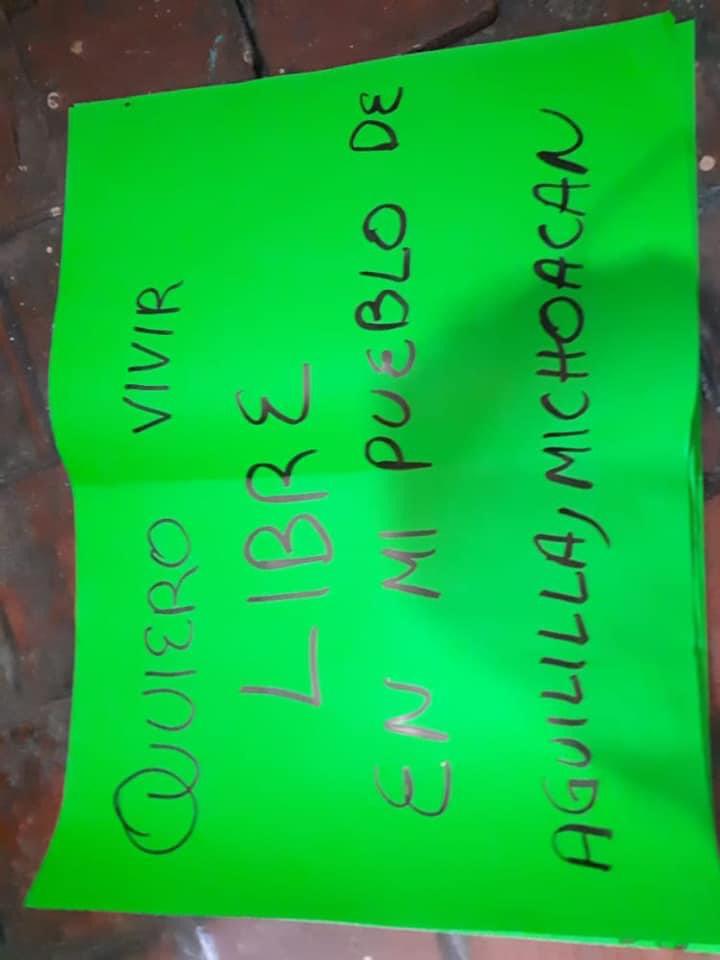 QUIERO VIVIR
LIBRE
EN MI PUEBLO DE
AGUILILLA, MICHOACAN